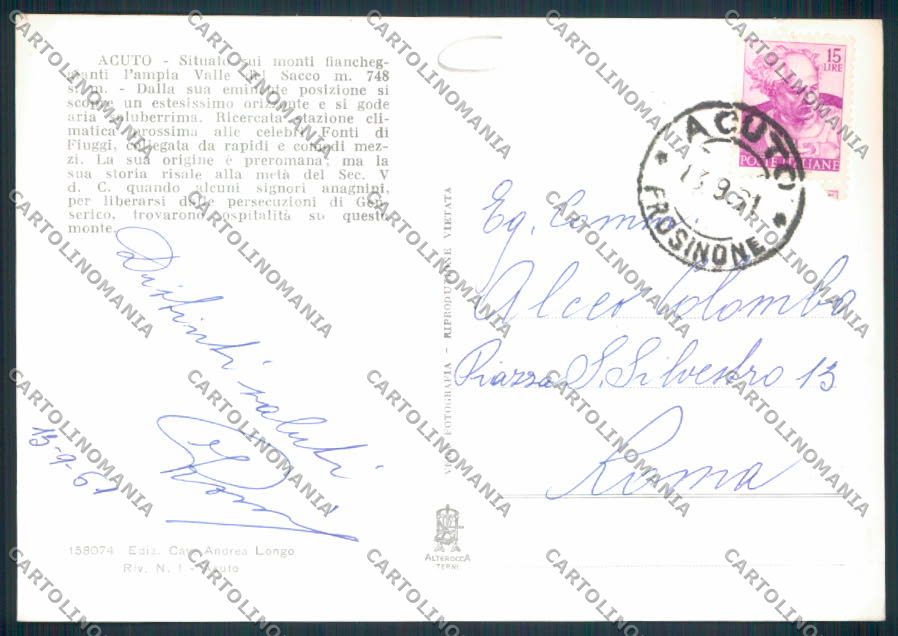 ACUTO - Situato sui monti fiancheg-
gianti l'ampia Valle del Sacco m. 748
s. m. - Dalla sua eminente posizione si
scopre un estesissimo orizzonte e si gode
aria saluberrima. Ricercata stazione cli-
matica prossima alle celebri Fonti di
Fiuggi, collegata da rapidi e comodi mez-
zi. La sua origine è preromana, ma la
sua storia risale alla metà del Sec. V
d. C. quando alcuni signori anagnini,
per liberarsi dalle persecuzioni di Gen-
serico, trovarono ospitalità su questo
monte.
Distinti saluti
13-9-61
158074 Ediz. Cav. Andrea Longo
Riv. N. 1 - Acuto
VERA FOTOGRAFIA - RIPRODUZIONE VIETATA
ALTEROCCA
TERNI
15
LIRE
POSTE ITALIANE
ACUTO
13.9.61
* FROSINONE *
Eg. Comm.
Alceo Colombo
Piazza S. Silvestro 13
Roma
CARTOLINOMANIA